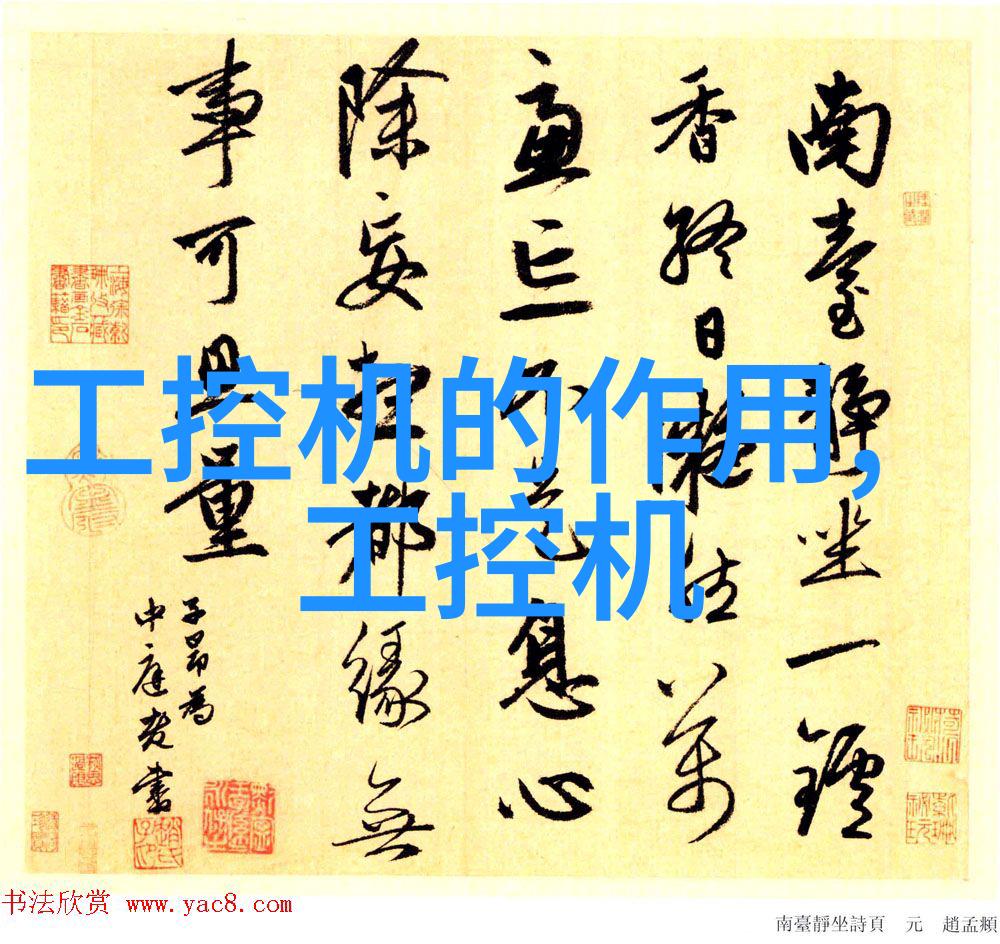 南臺靜坐一鑪
香終日凝然萬
慮亡不是息心
除妄想都緣無
事可思量
子昂為
中庭老書
工控机的作用,
工控机
书法欣赏 www.yac8.com
南臺靜坐詩頁 元 趙孟頫